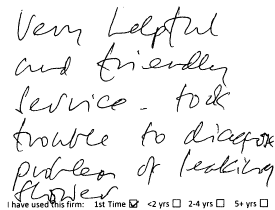 Very helpful
and friendly
service - took
trouble to diagnose
problem of leaking
shower
I have used this firm: 1st Time ☑ <2 yrs ☐ 2-4 yrs ☐ 5+ yrs ☐